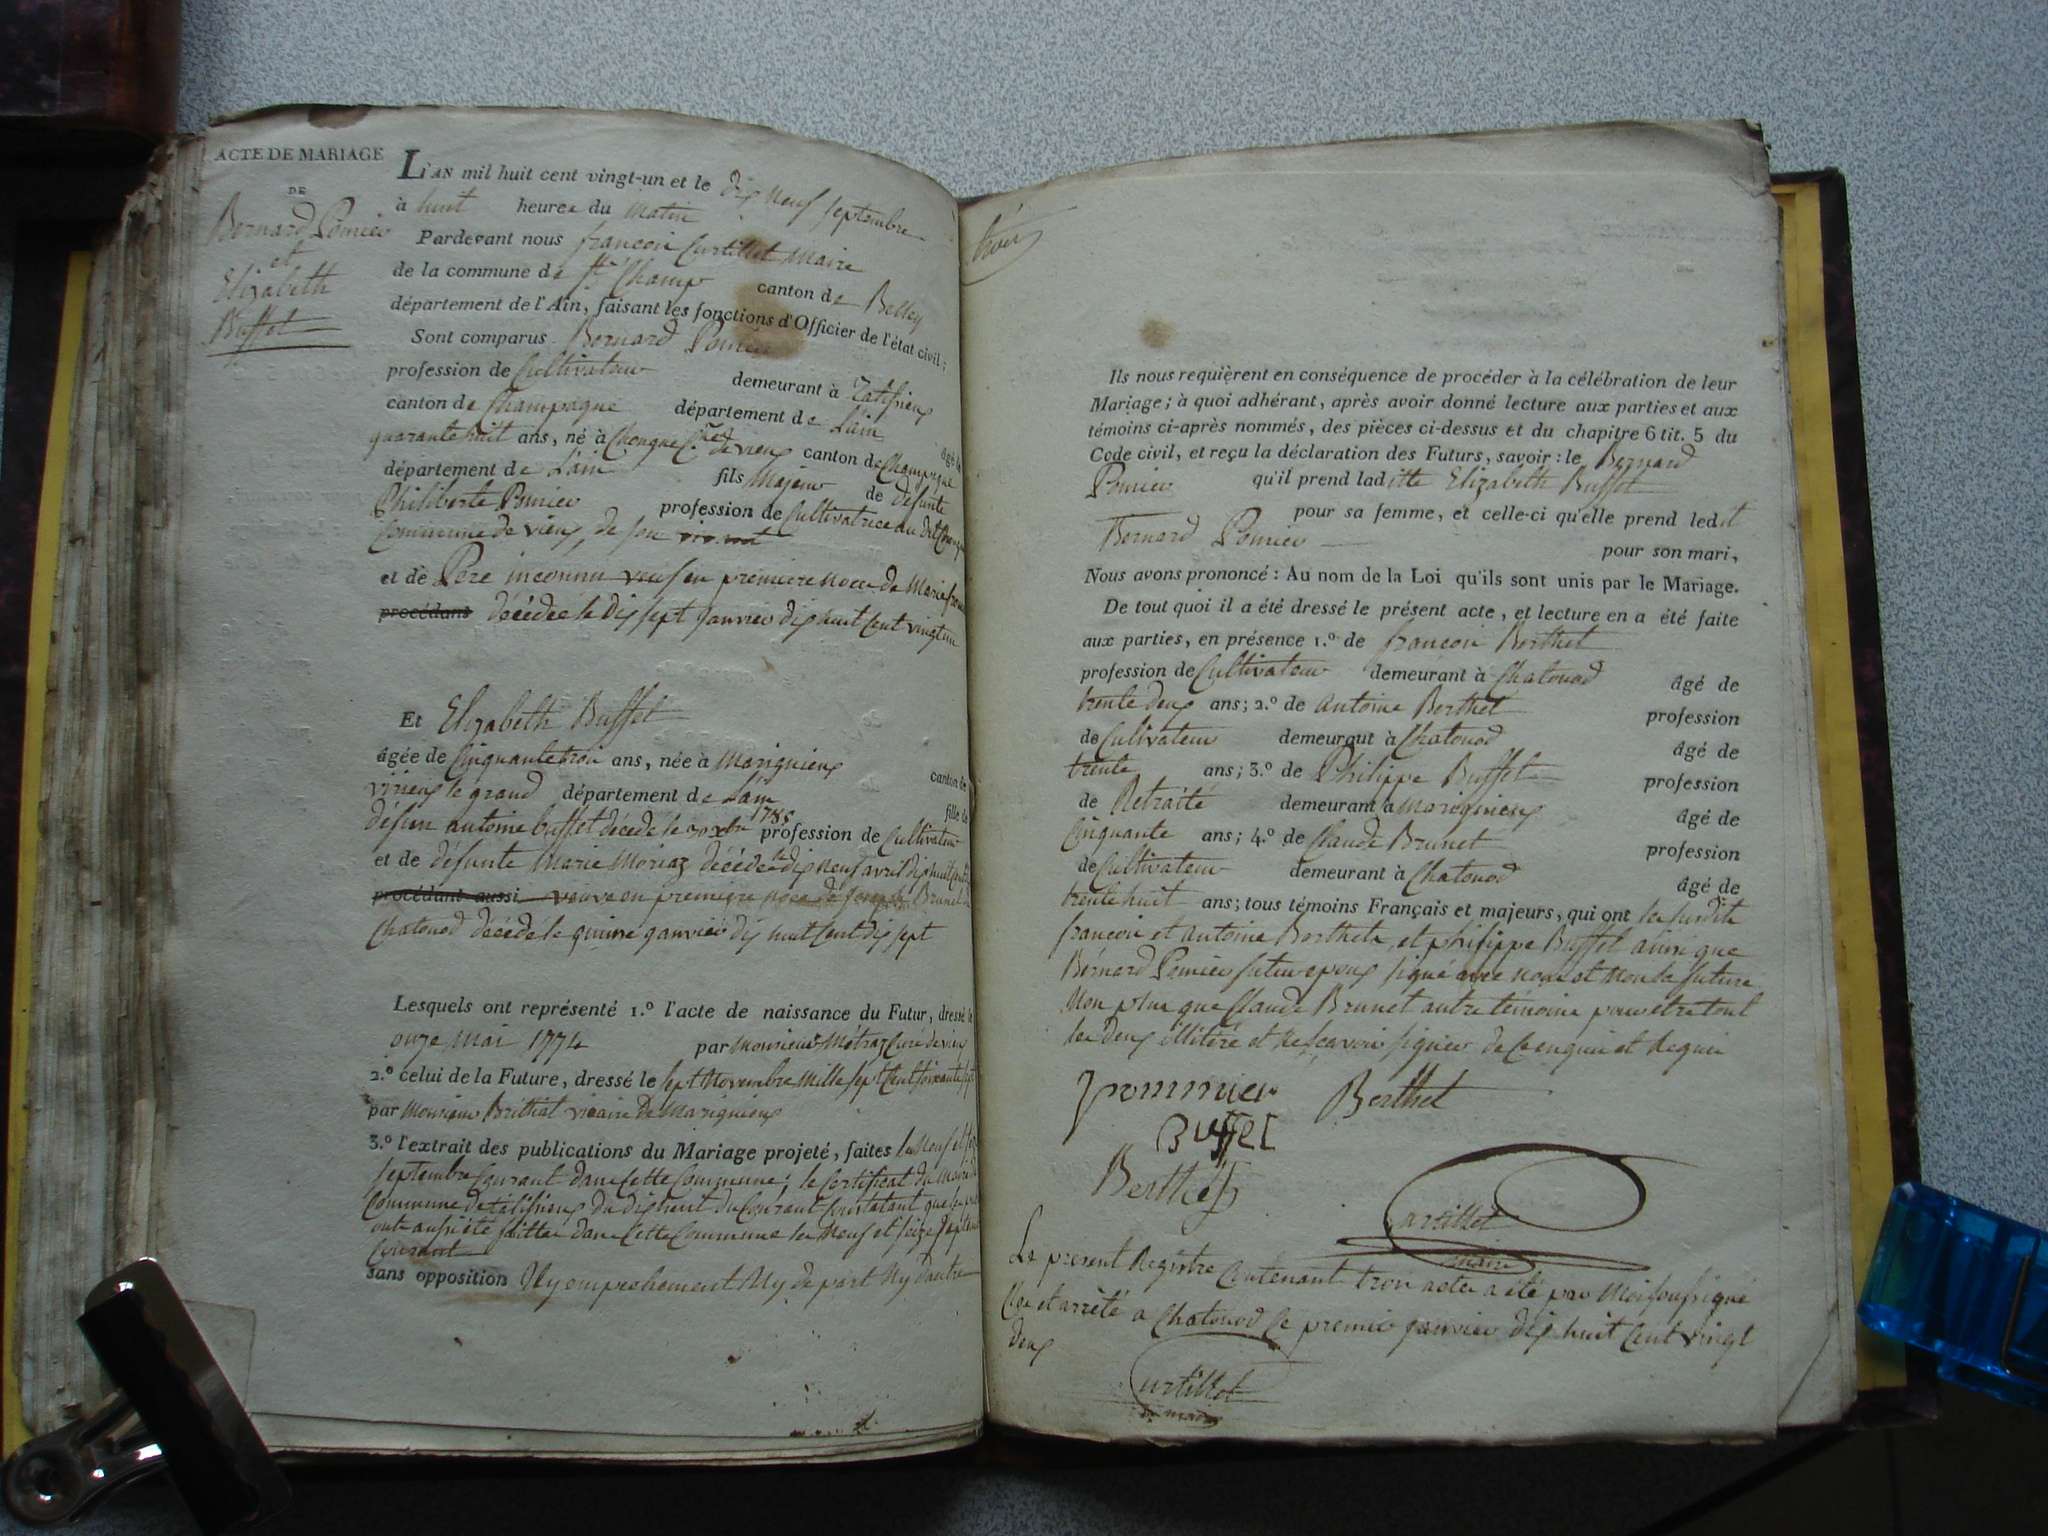 ACTE DE MARIAGE
DE
Bernard Pomier
et
Elizabeth
Buffet
L'AN mil huit cent vingt-un et le dix neuf septembre
à huit heures du matin
Pardevant nous françois Curtillet Maire
de la commune de St Champ canton de Belley
département de l'Ain, faisant les fonctions d'Officier de l'état civil;
Sont comparus Bernard Pomier
profession de Cultivateur demeurant à
canton de Champagne département de L'ain âgé de
quarante huit ans, né à de vieux canton de Champagne
département de L'ain fils Majeur de défunte
Philiberte Pomier profession de Cultivatrice au dit
Commune de vieux, de son vivant
et de Pere inconnu veuf en premiere noce de Marie
procédans décédée le dix sept janvier dix huit cent vingt un
Et Elizabeth Buffet
âgée de Cinquante trois ans, née à Marignieux canton de
virieux le grand département de L'ain fille de
défun antoine buffet décédé le 1788 profession de Cultivateur
et de défunte Marie Moriaz décédée le dix neuf avril dix huit cent
procédant aussi veuve en premiere noce de Joseph Brunet de
Chatonod décédé le quinze janvier dix huit cent dix sept
Lesquels ont représenté 1.º l'acte de naissance du Futur, dressé le
onze Mai 1774 par Monsieur Métraz Curé de vieux
2.º celui de la Future, dressé le sept Novembre Mille sept cent soixante sept
par Monsieur Brithiat vicaire de Marignieux
3.º l'extrait des publications du Mariage projeté, faites les Neuf et seize
septembre Courant dans cette Commune; le Certificat du Maire de
Commune de du dix huit du Courant Constatant que
ont aussi été faittes dans cette Commune les Neuf et seize septembre
Courant
sans opposition Ny empechement Ny de part Ny d'autre
trois
Ils nous requièrent en conséquence de procéder à la célébration de leur
Mariage; à quoi adhérant, après avoir donné lecture aux parties et aux
témoins ci-après nommés, des pièces ci-dessus et du chapitre 6 tit. 5 du
Code civil, et reçu la déclaration des Futurs, savoir: le Bernard
Pomier qu'il prend laditte Elizabeth Buffet
pour sa femme, et celle-ci qu'elle prend ledit
Bernard Pomier pour son mari,
Nous avons prononcé: Au nom de la Loi qu'ils sont unis par le Mariage.
De tout quoi il a été dressé le présent acte, et lecture en a été faite
aux parties, en présence 1.º de françois Berthet
profession de Cultivateur demeurant à Chatonod âgé de
trente deux ans; 2.º de Antoine Berthet profession
de Cultivateur demeurant à Chatonod âgé de
trente ans; 3.º de Philippe Buffet profession
de Retraité demeurant à Marignieux âgé de
Cinquante ans; 4.º de Claude Brunet profession
de Cultivateur demeurant à Chatonod âgé de
trente huit ans; tous témoins Français et majeurs, qui ont les susdits
françois et Antoine Berthets, et philippe Buffet ainsi que
Bernard Pomier futur epoux signé avec nous et Non la future
Non plus que Claude Brunet autre témoins pour etre tout
les deux illitéré et Ne scavoir signer de ce enquis et Requis
pommier Berthet
Buffet
Berthet
Curtillet
maire
Le present Registre Contenant trois actes a été par Moi soussigné
Clos et arrété a Chatonod Ce premier janvier dix huit cent vingt
deux
Curtillet
maire